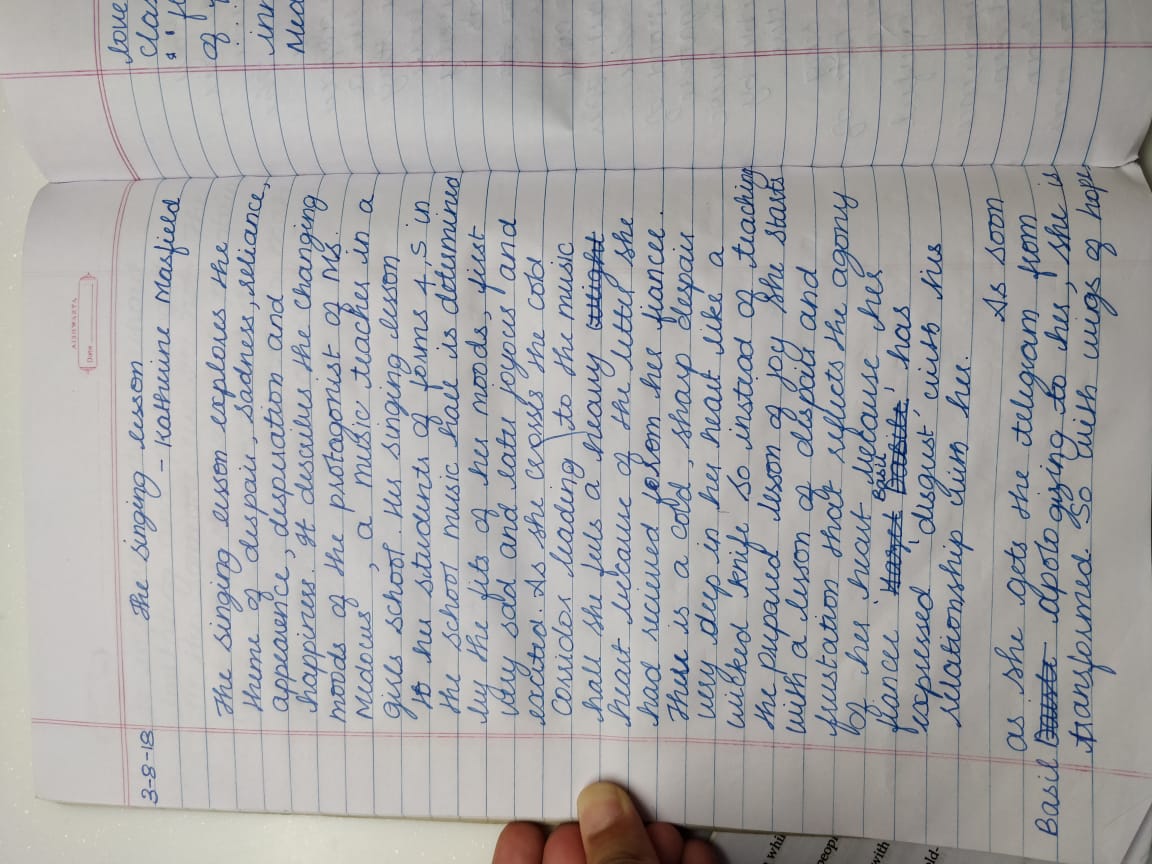 AISHWARYA
Date
3-8-18
The singing lesson
- Katherine Masfield
The singing lesson explores the
theme of despair, sadness, reliance,
appearence, desparation and
happiness. It describes the changing
moods of the protagonist of Ms.
Meadows, a music teacher in a
girls school. Her singing lesson
to her students of forms 4, 5 in
the school music hall is determined
by the fits of her moods, first
very sad and later joyous and
excited. As she crosses the cold
Corridor leading to the music
hall she feels a heavy
heart because of the letter she
had recieved from her fiancee.
There is a cold, sharp despair
very deep in her heart like a
wicked knife so instead of teaching
the prepared lesson of joy she starts
with a lesson of despair and
frustration that reflects the agony
of her heart because her
fiance Basil, has
expressed 'disgust' with his
relationship with her.
As soon
as she gets the telegram from
Basil apologizing to her, she is
transformed. So with wigs of hope
love
Clas
of
inn
Mea
whi
peopl
with
old-